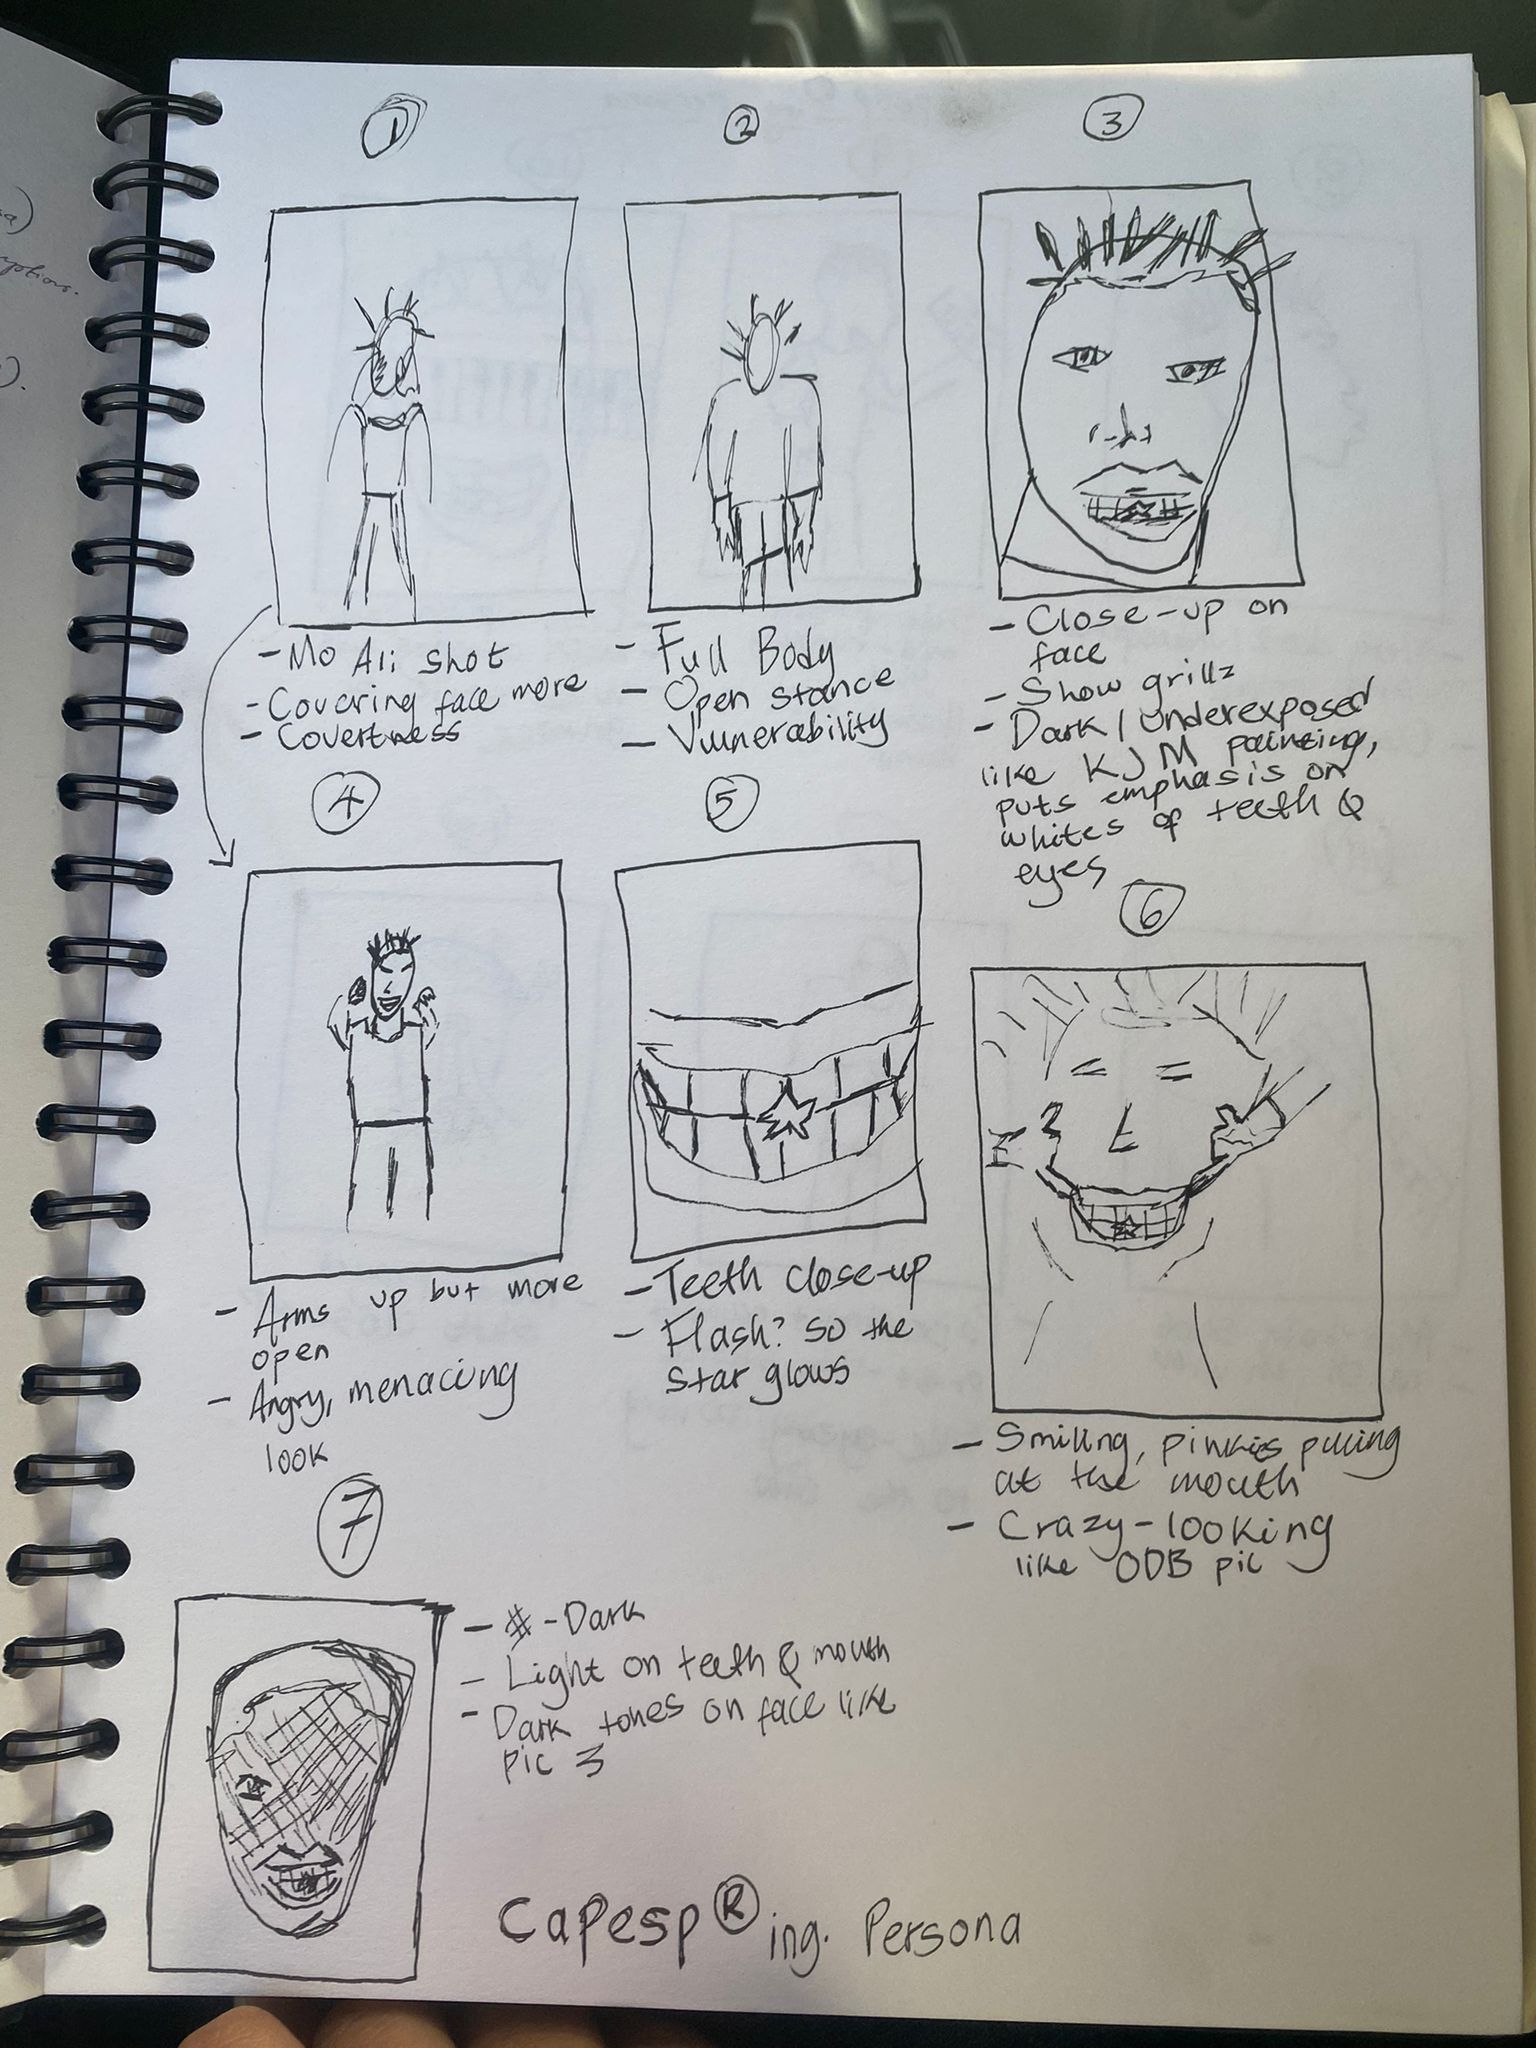 1
2
3
- Mo Ali shot
- Covering face more
- Covertness
- Full Body
- Open stance
- Vulnerability
- Close-up on
face
- Show grillz
- Dark/underexposed
like KJM painting,
puts emphasis on
whites of teeth &
eyes
4
5
6
- Arms up but more
open
- Angry, menacing
look
- Teeth close-up
- Flash? So the
star glows
- Smiling, pinkies pulling
at the mouth
- Crazy-looking
like ODB pic
7
- Dark
- Light on teeth & mouth
- Dark tones on face like
pic 3
Capesp®ing. Persona